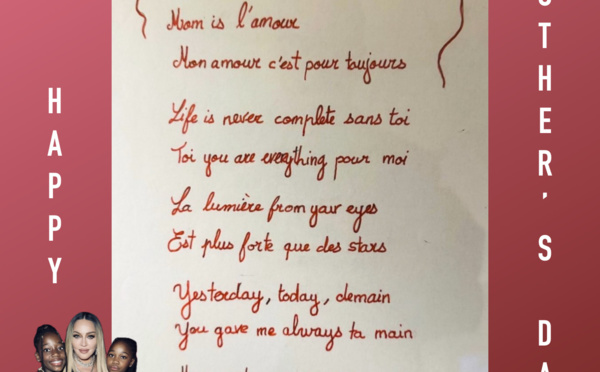 HAPPY
Mom is l'amour
Mon amour c'est pour toujours
Life is never complete sans toi
Toi you are everything pour moi
La lumière from your eyes
Est plus forte que des stars
Yesterday, today, demain
You gave me always ta main
OTHER'S DA